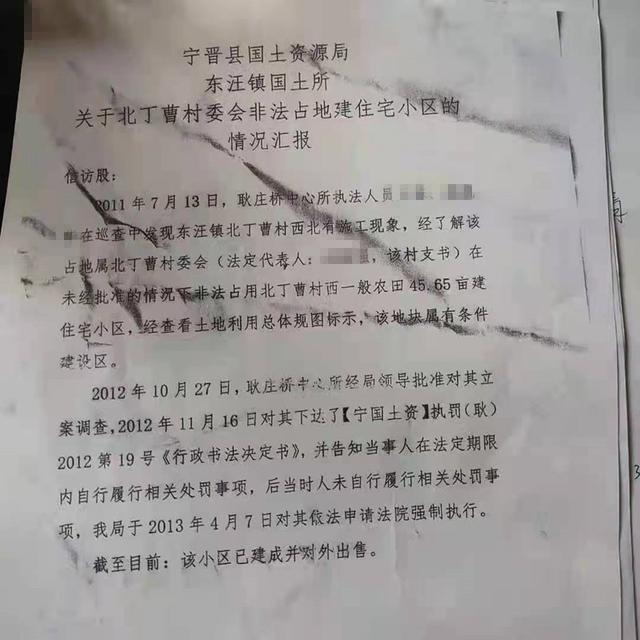 宁晋县国土资源局
东汪镇国土所
关于北丁曹村委会非法占地建住宅小区的
情况汇报
信访股：
2011年7月13日，耿庄桥中心所执法人员
在巡查中发现东汪镇北丁曹村西北有施工现象，经了解该
占地属北丁曹村委会（法定代表人： ，该村支书）在
未经批准的情况下非法占用北丁曹村西一般农田45.65亩建
住宅小区，经查看土地利用总体规图标示，该地块属有条件
建设区。
2012年10月27日，耿庄桥中心所经局领导批准对其立
案调查，2012年11月16日对其下达了【宁国土资】执罚（耿）
2012第19号《行政书法决定书》，并告知当事人在法定期限
内自行履行相关处罚事项，后当时人未自行履行相关处罚事
项，我局于2013年4月7日对其依法申请法院强制执行。
截至目前：该小区已建成并对外出售。